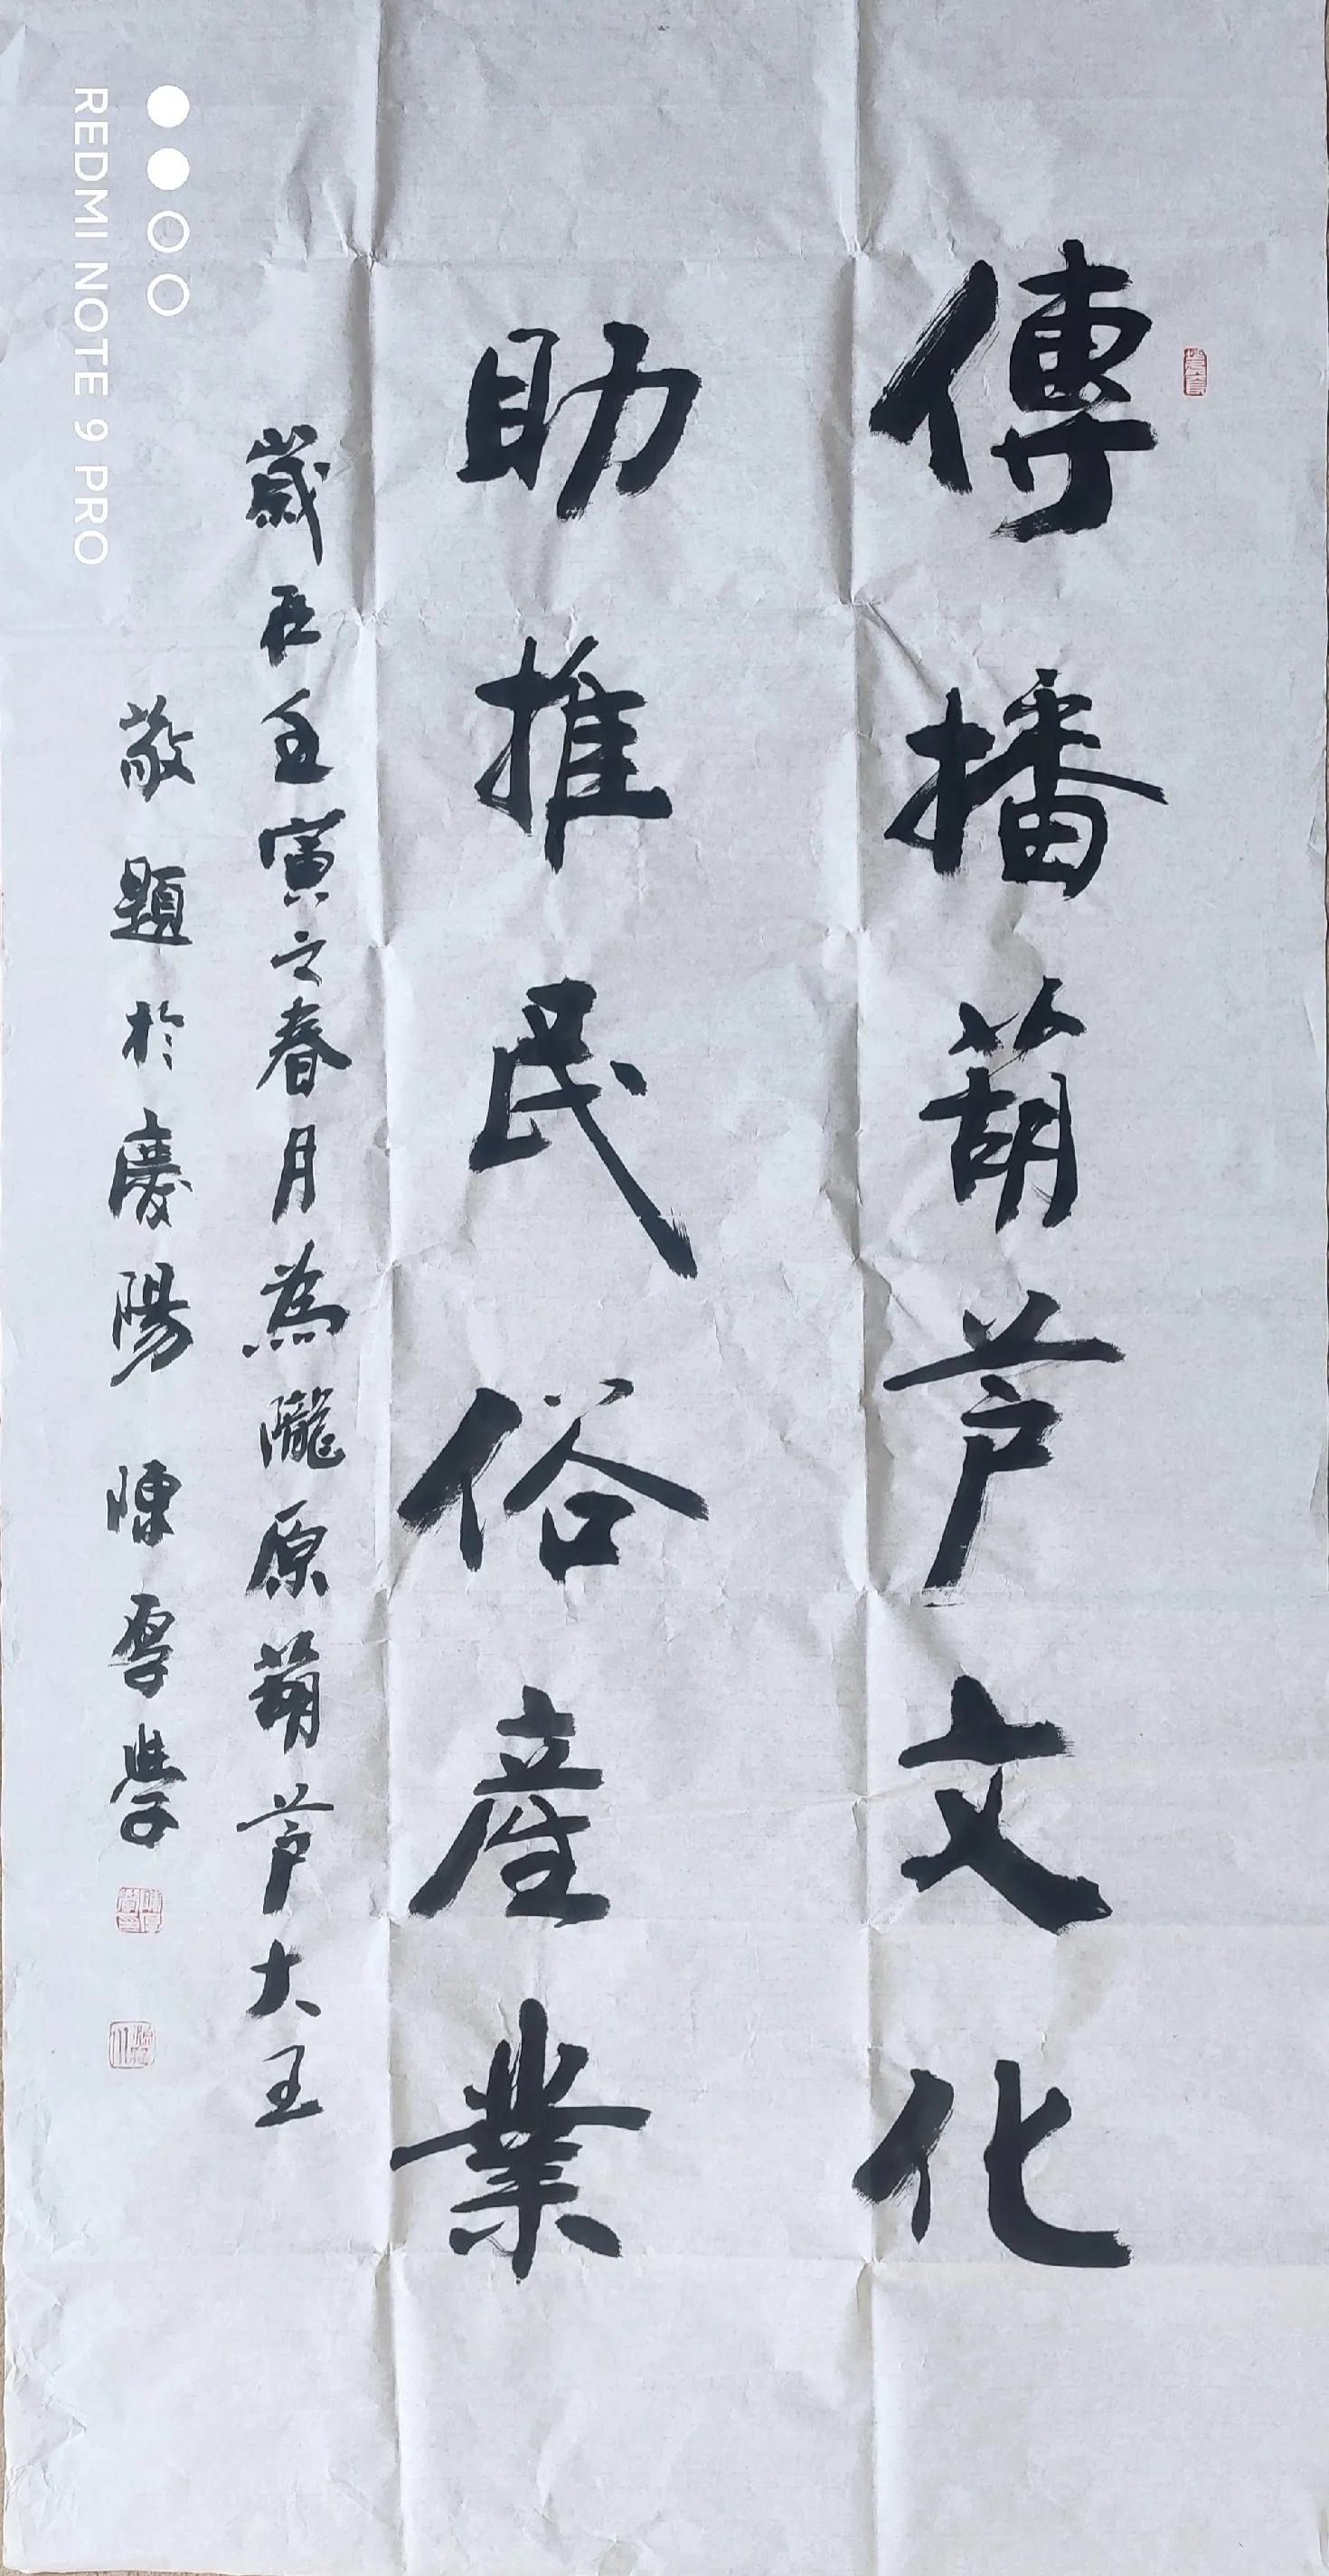 傳播葫芦文化
助推民俗產業
歲在壬寅之春月為隴原葫芦大王
敬題於慶陽 陳厚學
REDMI NOTE 9 PRO